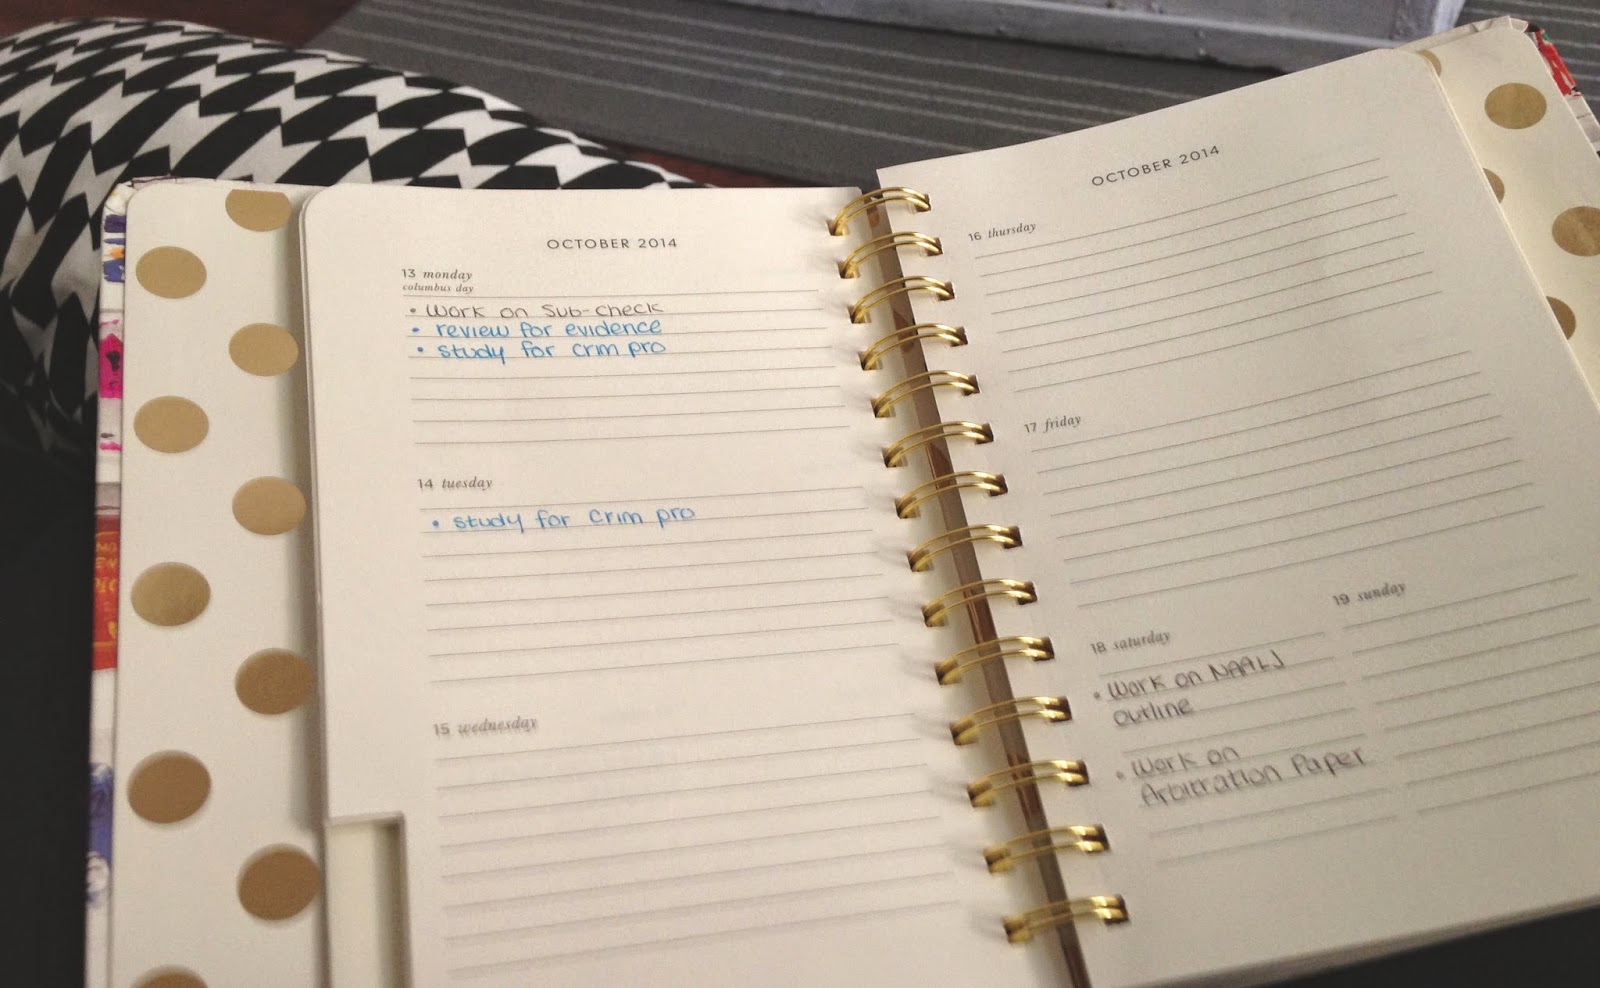 OCTOBER 2014
13 monday
columbus day
• Work on Sub-Check
• review for evidence
• study for crim pro
14 tuesday
• study for crim pro
15 wednesday
OCTOBER 2014
16 thursday
17 friday
18 saturday
• Work on NAALJ
outline
• Work on
Arbitration Paper
19 sunday